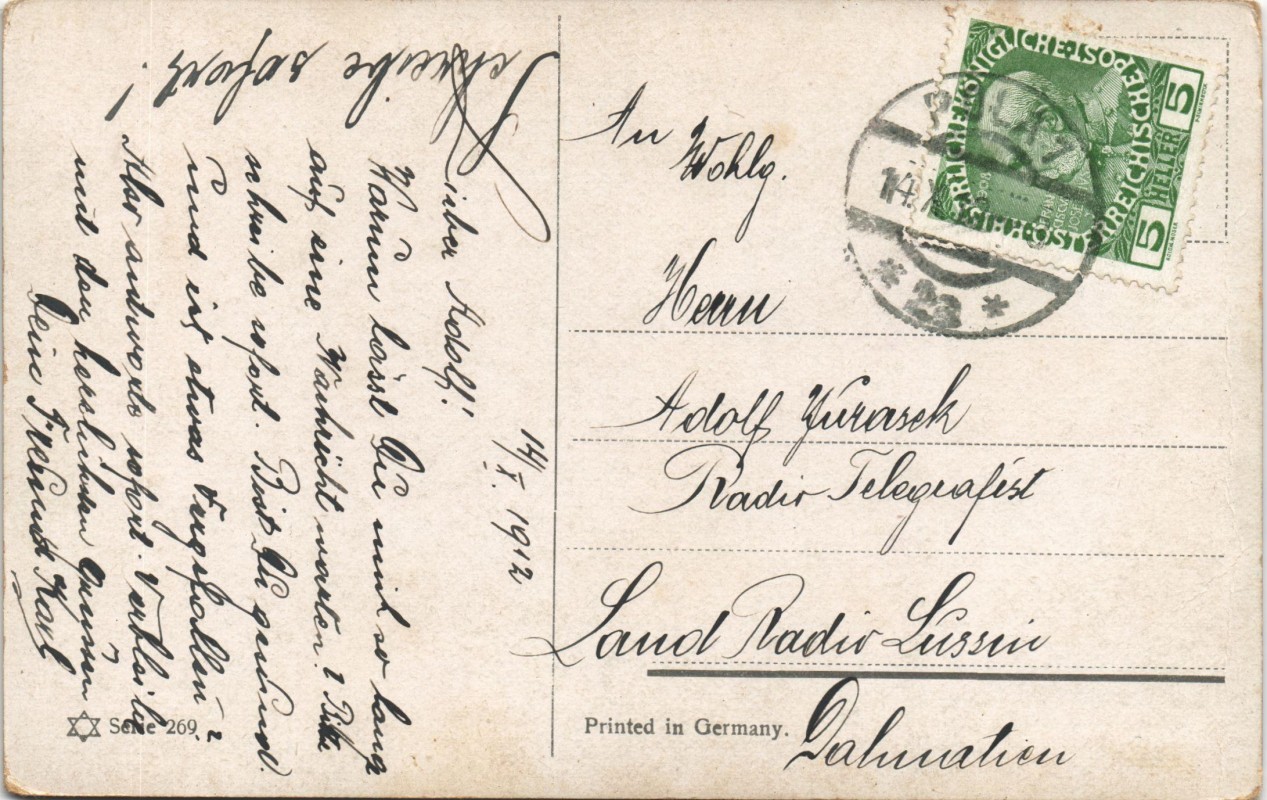 Schreibe sofort!
14/X. 1912
Lieber Adolf!
Warum lässt Du mich so lang
auf eine Nachricht warten? Bitte
schreibe sofort. Bist Du gesund
und ist etwas vorgefallen?
Aber antworte sofort. Verbleibe
mit den herzlichsten Grüssen
Dein Freund Karl
Serie 269.
An
Wohlg.
Herrn
Adolf Jurasek
Radio Telegrafist
Land Radio Lussin
Dalmatien
Printed in Germany.
KAISERLICHE KÖNIGLICHE ÖSTERREICHISCHE POST
5 HELLER 5
POLA 1
14.X.12
* 2a *